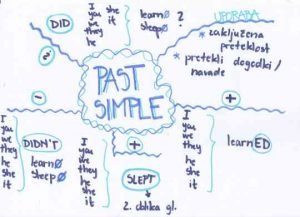 DID
I
you
we
they
he
she
it
learnØ
sleepØ
?
UPORABA
* zaključena
preteklost
* pretekli dogodki /
navade
PAST
SIMPLE
−
I
you
we
they
he
she
it
DIDN'T
learnØ
sleepØ
I
you
we
they
he
she
it
+
SLEPT
2. oblika gl.
I
you
we
they
he
she
it
+
learnED